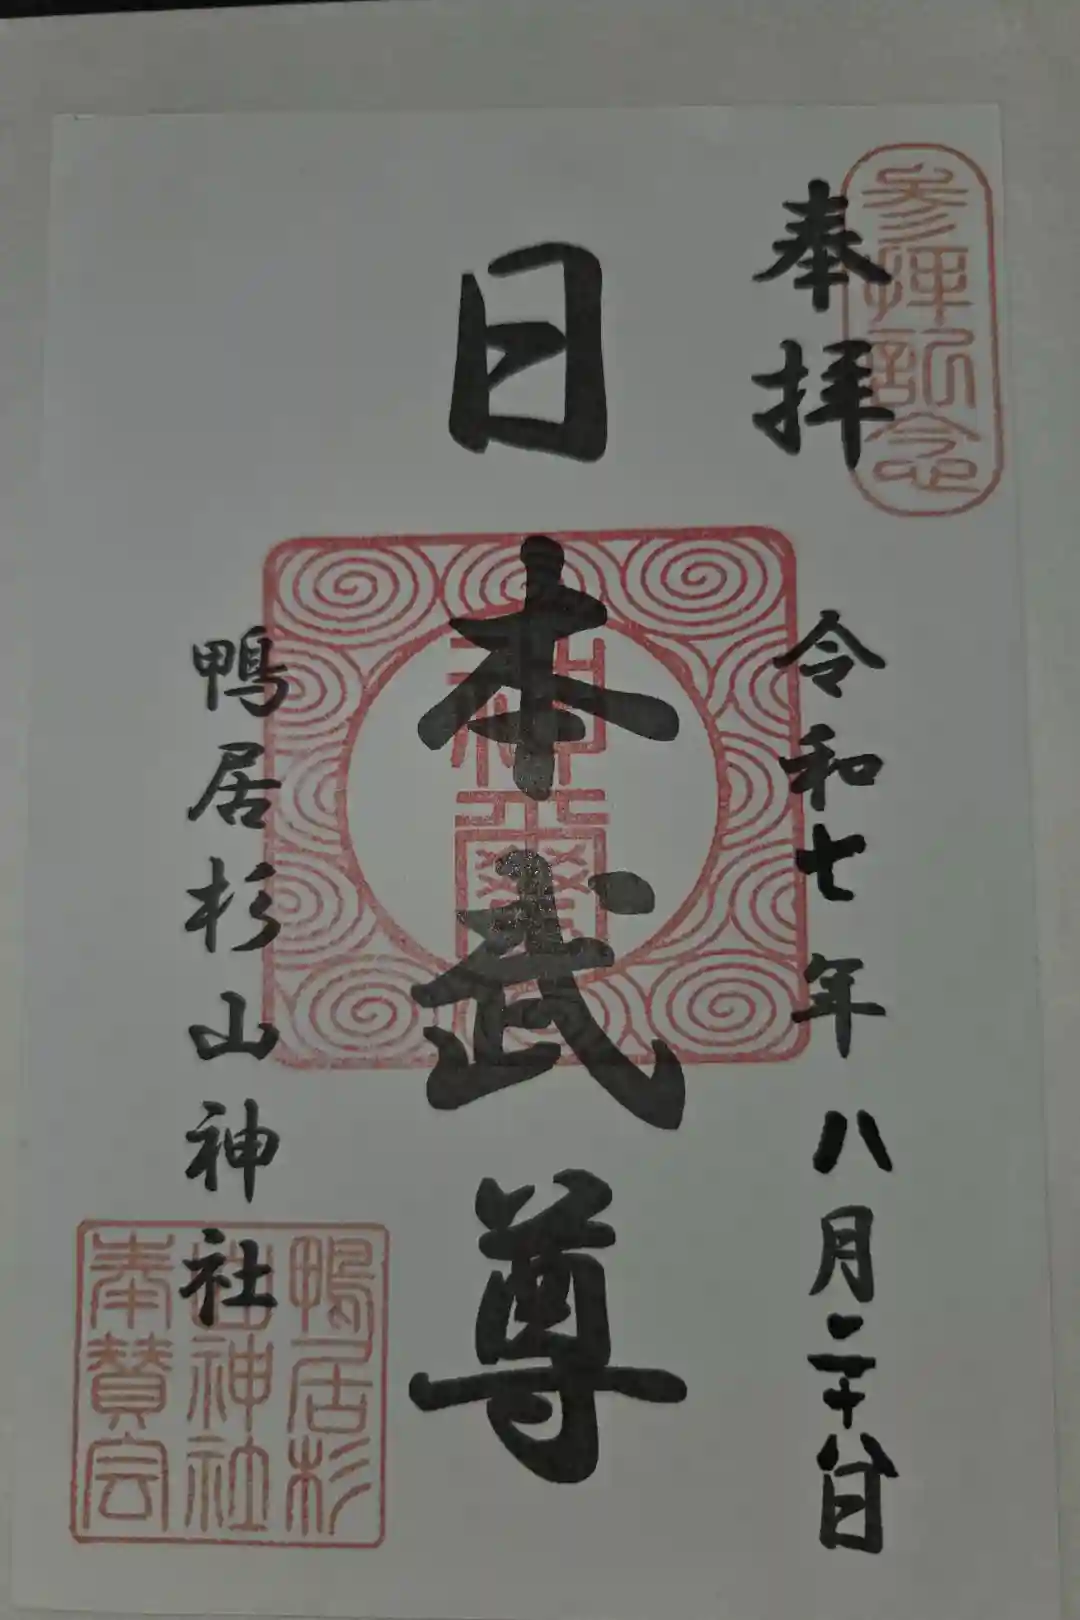 参拝記念
奉拝
令和七年八月二十八日
日本武尊
神璽
鴨居杉山神社
鴨居杉
山神社
奉賛会